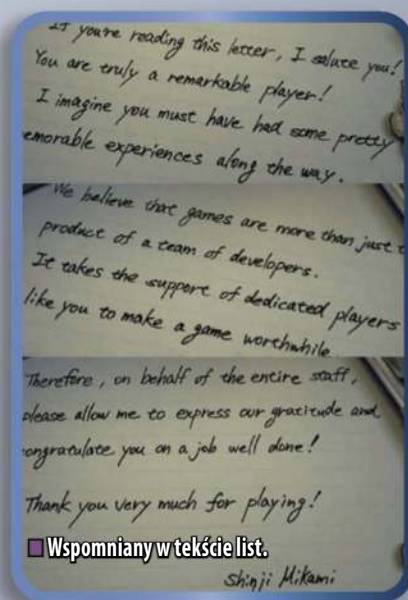 If you're reading this letter, I salute you!
You are truly a remarkable player!
I imagine you must have had some pretty
emorable experiences along the way.
We believe that games are more than just t
product of a team of developers.
It takes the support of dedicated players
like you to make a game worthwhile.
Therefore, on behalf of the entire staff,
please allow me to express our gratitude and
ongratulate you on a job well done!
Thank you very much for playing!
Wspomniany w tekście list.
Shinji Mikami